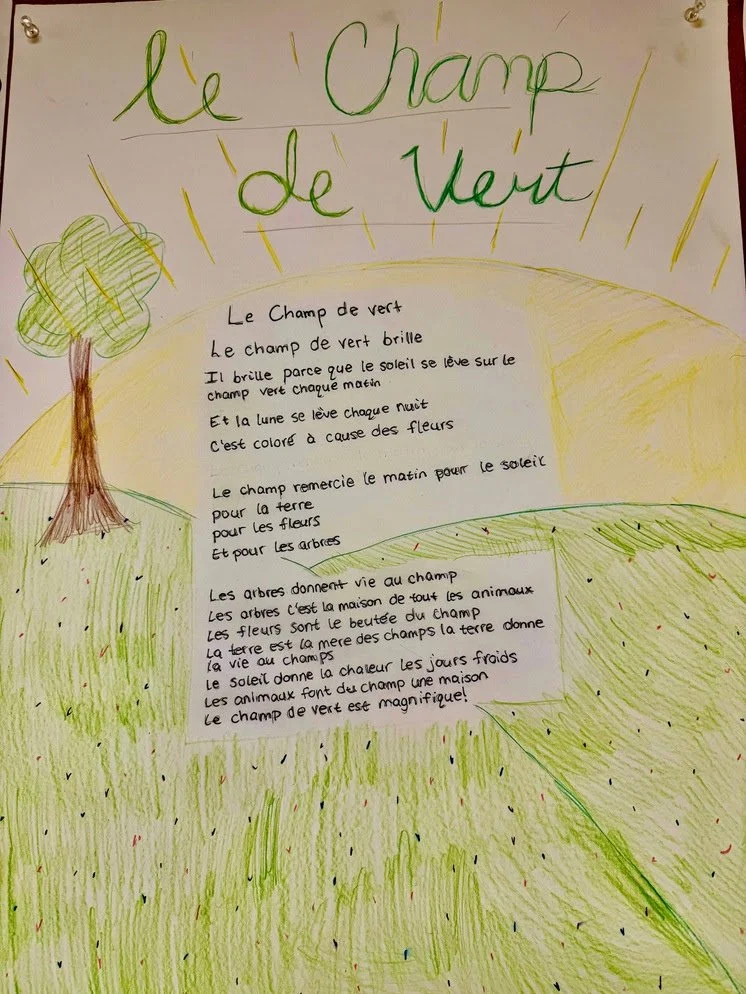 le Champ
de Vert
Le Champ de vert
Le champ de vert brille
Il brille parce que le soleil se lève sur le
champ vert chaque matin
Et la lune se lève chaque nuit
C'est coloré à cause des fleurs
Le champ remercie le matin pour le soleil
pour la terre
pour les fleurs
Et pour les arbres
Les arbres donnent vie au champ
Les arbres c'est la maison de tout les animaux
Les fleurs sont le beutée du champ
La terre est la mere des champs la terre donne
la vie au champs
Le soleil donne la chaleur les jours froids
Les animaux font du champ une maison
Le champ de vert est magnifique!